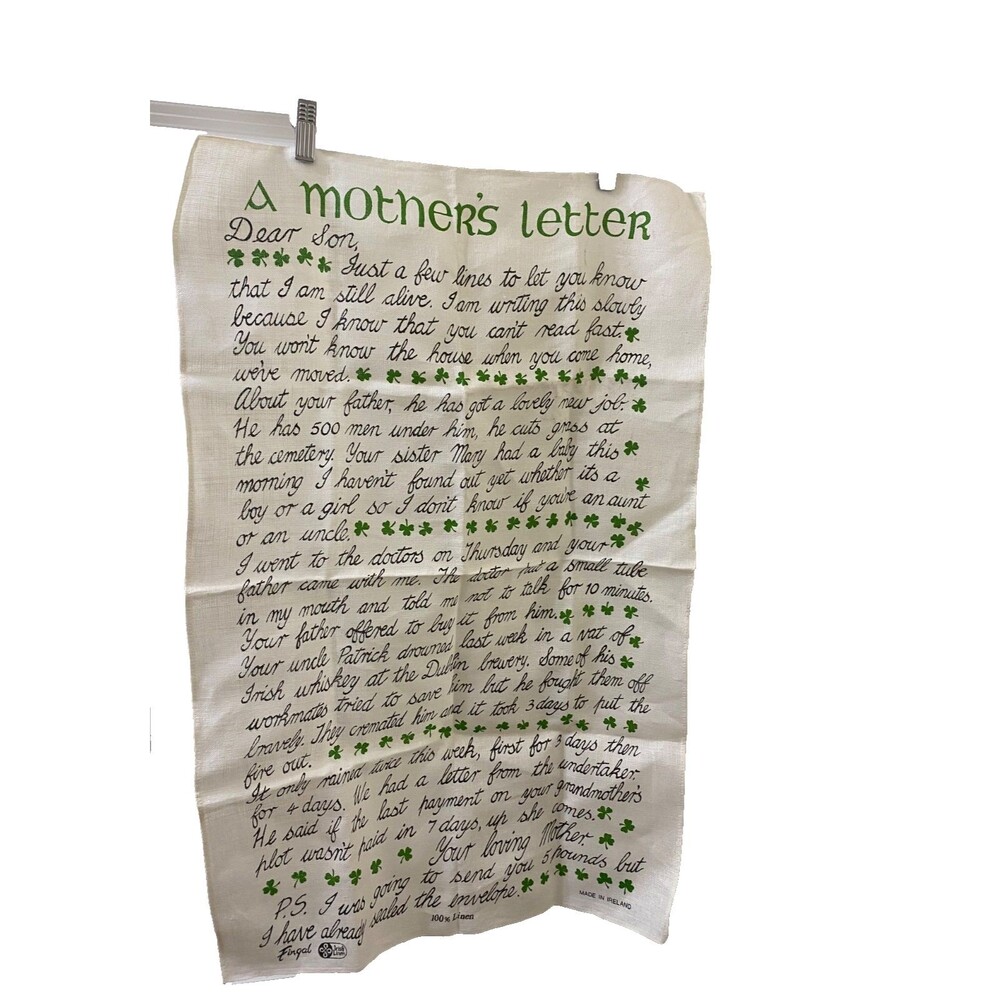 A mother's letter
Dear Son,
Just a few lines to let you know
that I am still alive. I am writing this slowly
because I know that you can't read fast.
You won't know the house when you come home,
we've moved.
About your father, he has got a lovely new job.
He has 500 men under him, he cuts grass at
the cemetery. Your sister Mary had a baby this
morning I haven't found out yet whether its a
boy or a girl so I don't know if you're an aunt
or an uncle.
I went to the doctors on Thursday and your
father came with me. The doctor put a small tube
in my mouth and told me not to talk for 10 minutes.
Your father offered to buy it from him.
Your uncle Patrick drowned last week in a vat of
Irish whiskey at the Dublin brewery. Some of his
workmates tried to save him but he fought them off
bravely. They cremated him and it took 3 days to put the
fire out.
It only rained twice this week, first for 3 days then
for 4 days. We had a letter from the undertaker.
He said if the last payment on your grandmother's
plot wasn't paid in 7 days, up she comes.
Your loving Mother.
P.S. I was going to send you 5 pounds but
I have already sealed the envelope.
MADE IN IRELAND
100% Linen
Fingal Irish Linen